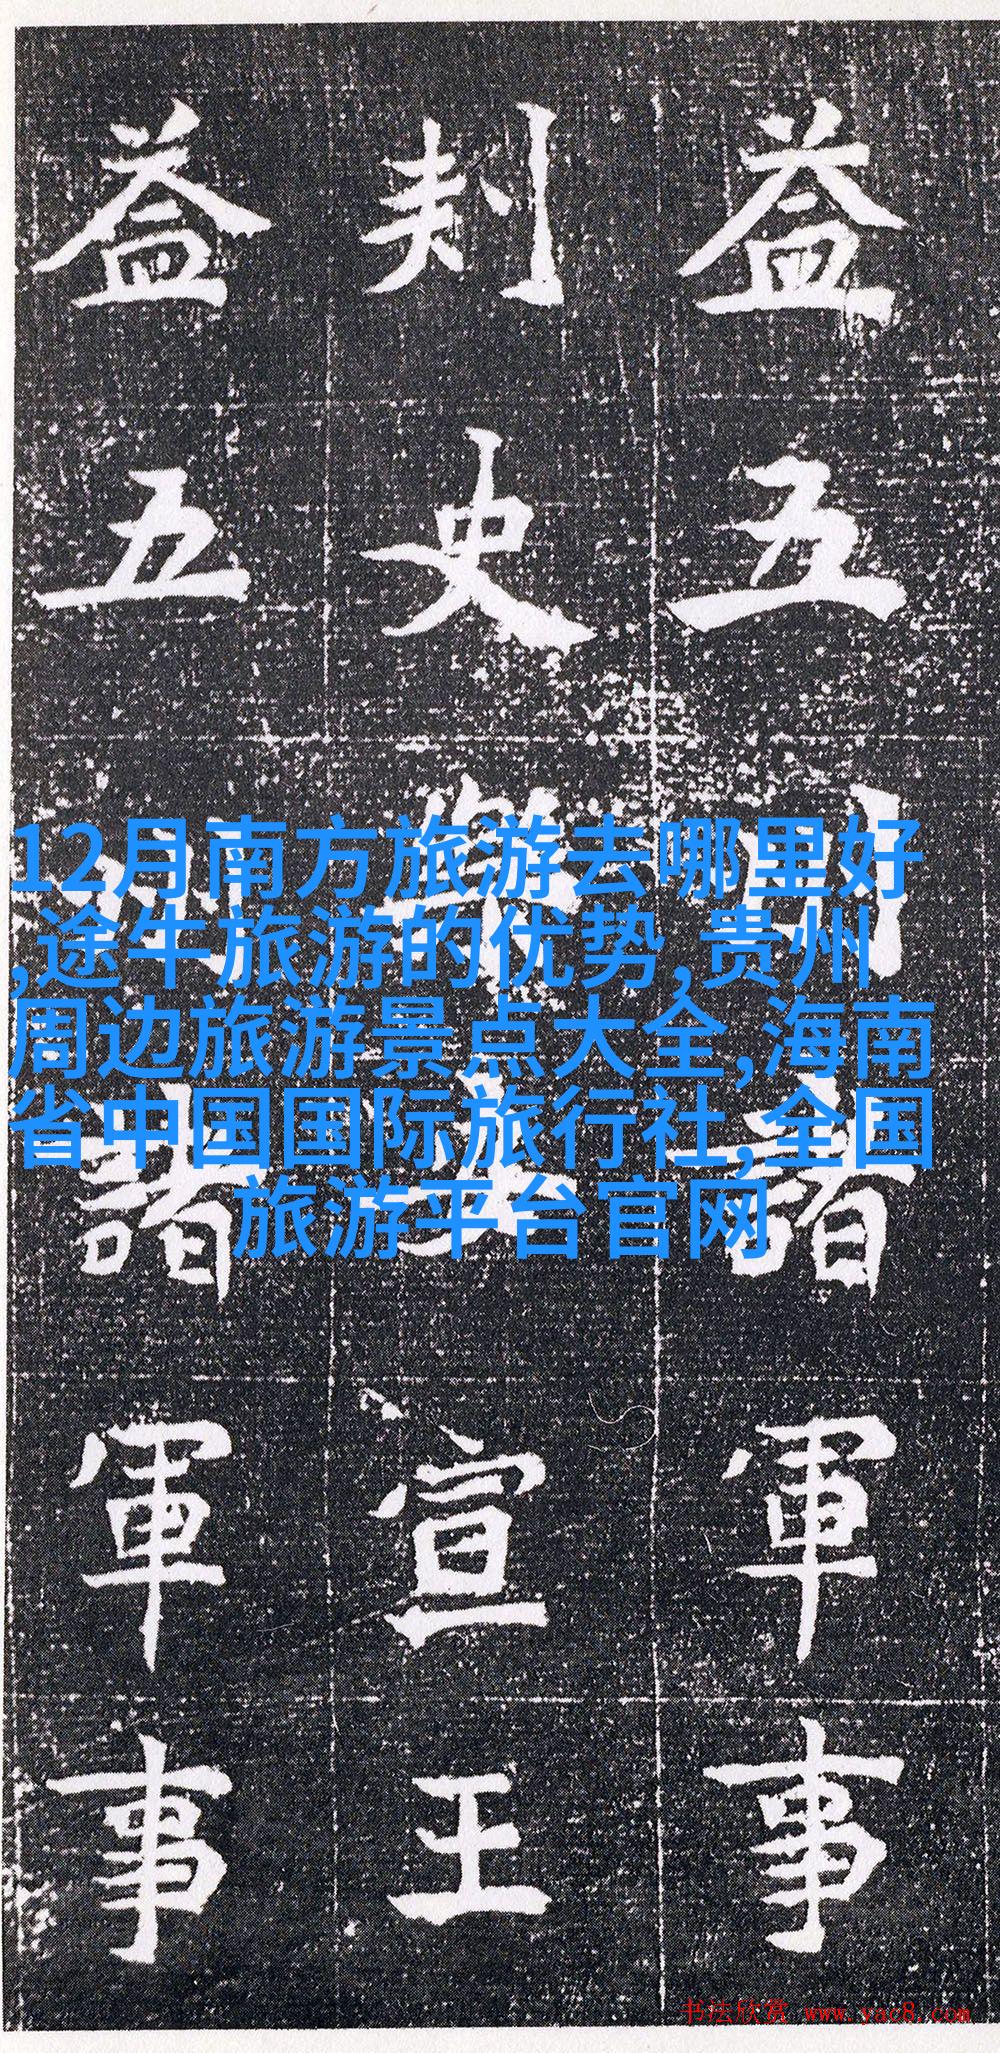 益五州諸軍事
刾史宣王
益五州諸軍事
12月南方旅游去哪里好
,途牛旅游的优势,贵州
周边旅游景点大全,海南
省中国国际旅行社,全国
旅游平台官网
书法欣赏 www.yac8.com